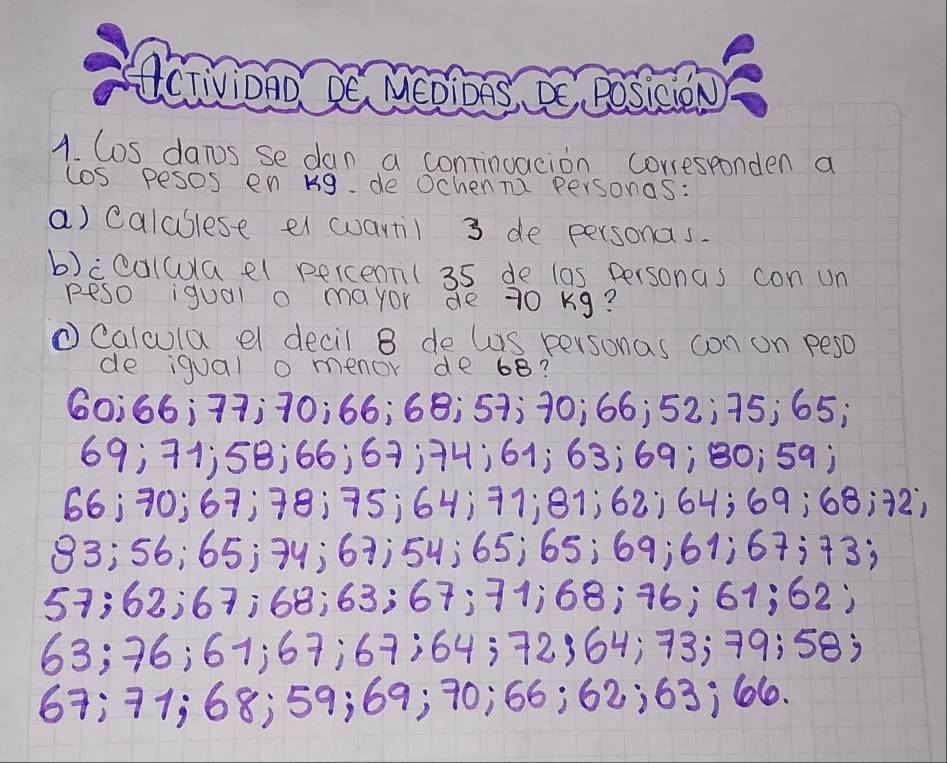 ACTIVIDAD DE MEDIDAS DE POSICIÓN
1. Los datos se dan a continuación corresponden a
los pesos en kg. de ochenta personas:
a) Calculese el cuartil 3 de personas.
b) ¿Calcula el percentil 35 de las personas con un
peso igual o mayor de 70 kg?
c) Calcula el decil 8 de las personas con un peso
de igual o menor de 68?
60; 66; 77; 70; 66; 68; 57; 70; 66; 52; 75; 65;
69; 71; 58; 66; 67; 74; 61; 63; 69; 80; 59;
66; 70; 67; 78; 75; 64; 71; 81; 62; 64; 69; 68; 72;
83; 56; 65; 74; 67; 54; 65; 65; 69; 61; 67; 73;
57; 62; 67; 68; 63; 67; 71; 68; 76; 61; 62;
63; 76; 61; 67; 67; 64; 72; 64; 73; 79; 58;
67; 71; 68; 59; 69; 70; 66; 62; 63; 66.